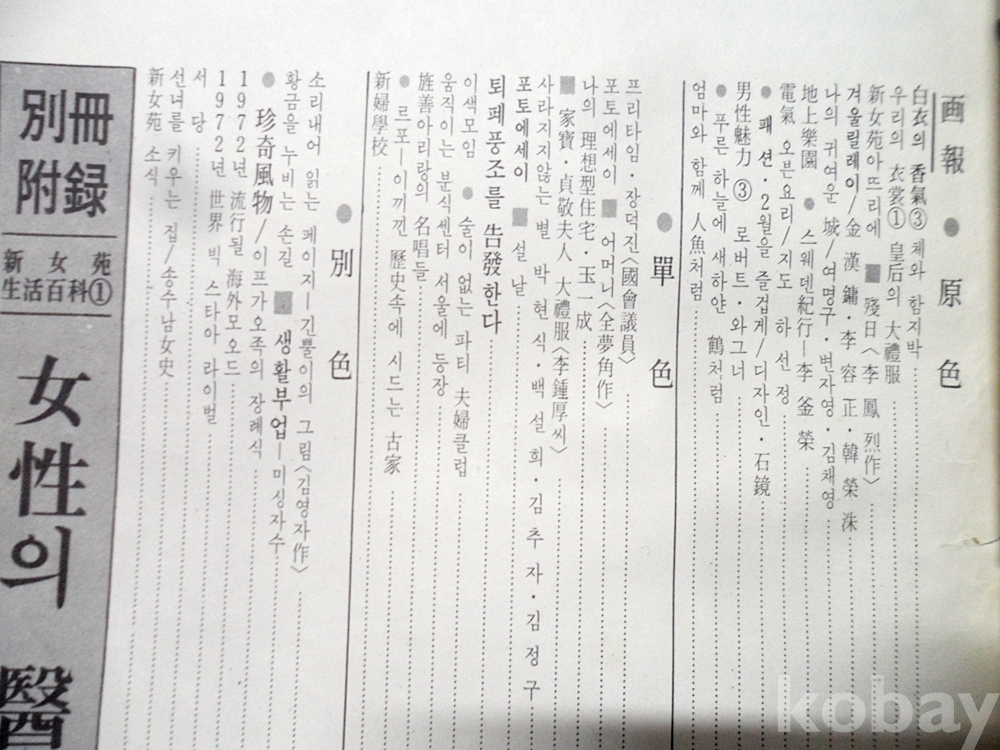 画報
● 原色
白衣의 香氣③ 체와 함지박
우리의 衣裳① 皇后의 大禮服
新女苑아뜨리에 ■ 殘日〈李鳳烈作〉
겨울릴레이/金漢鏞・李容正・韓榮洙
나의 귀여운 城/여명구・변자영・김채영
地上樂園 ● 스웨덴紀行─李釜榮
電氣 오븐요리/지도 하선정
● 패션・2월을 즐겁게/디자인・石鏡
男性魅力③ 로버트・와그너
● 푸른 하늘에 새하얀 鶴처럼
엄마와 함께 人魚처럼
● 單色
프리타임・장덕진〈國會議員〉
포토에세이 ■ 어머니〈全夢角作〉
나의 理想型住宅・玉一成
■ 家寶・貞敬夫人 大禮服〈李鍾厚씨〉
사라지지않는 별 박현식・백설희・김추자・김정구
포토에세이 ■ 설날
퇴폐풍조를 告發한다
이색모임 ● 술이 없는 파티 夫婦클럽
움직이는 분식센터 서울에 등장
旌善아리랑의 名唱들
● 르포─이끼낀 歷史속에 시드는 古家
新婦學校
● 別色
소리내어 읽는 페이지─긴뿔이의 그림〈김영자作〉
황금을 누비는 손길 ■ 생활부업─미싱자수
● 珍奇風物/이프가오족의 장례식
1972년 流行될 海外모오드
1972년 世界 빅 스타아 라이벌
서당
선녀를 키우는 집/송수남女史
新女苑 소식
別冊
附録
新女苑
生活百科①
女性의
醫
kobay